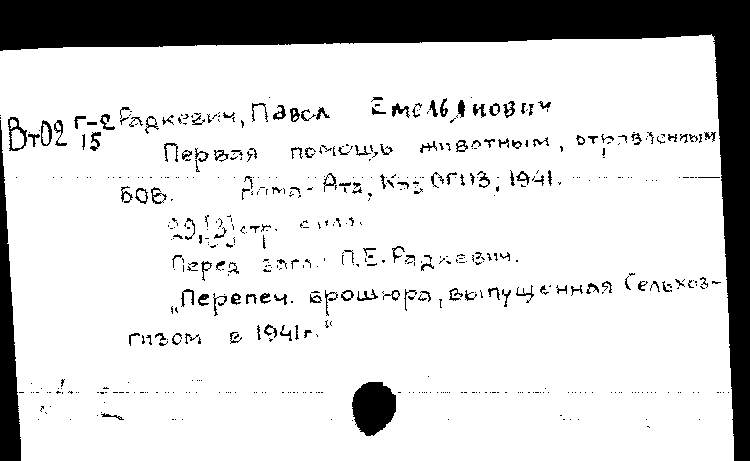 Вт02 Г-2 Радкевич, Павел Емельянович
15
Первая помощь животным, отравленным
БОВ. Алма-Ата, КазОГИЗ, 1941.
29,[3] стр. с илл.
Перед загл.: П.Е.Радкевич.
„Перепеч. брошюра, выпущенная Сельхоз-
гизом в 1941г."